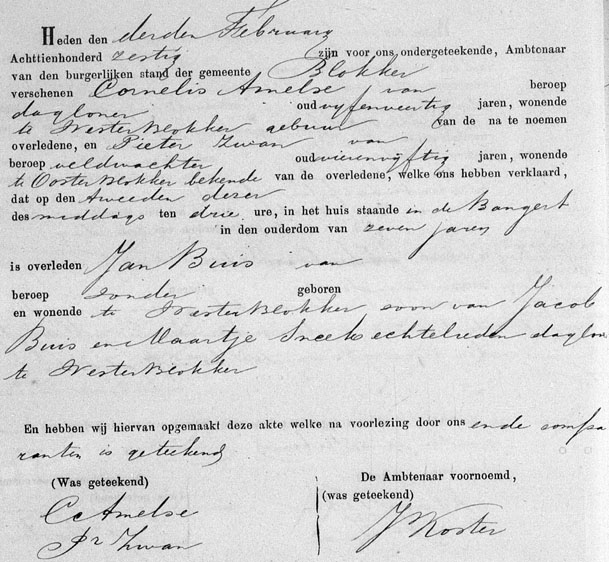 Heden den derden February
Achttienhonderd zestig zijn voor ons, ondergeteekende, Ambtenaar
van den burgerlijken stand der gemeente Blokker
verschenen Cornelis Amelse van beroep
dagloner oud vijfenveertig jaren, wonende
te WesterBlokker gebuur van de na te noemen
overledene, en Pieter Zwan van
beroep veldwachter oud vierenvijftig jaren, wonende
te OosterBlokker bekende van de overledene, welke ons hebben verklaard,
dat op den tweeden dezer
des middags ten drie ure, in het huis staande in de Bangert
in den ouderdom van zeven jaren
is overleden Jan Buis van
beroep zonder geboren
en wonende te WesterBlokker zoon van Jacob
Buis en Maartje Sneek echtelieden daglone
te WesterBlokker
En hebben wij hiervan opgemaakt deze akte welke na voorlezing door ons en de compa
ranten is geteekend
(Was geteekend) De Ambtenaar voornoemd,
(was geteekend)
C Amelse
Pr Zwan
J Koster